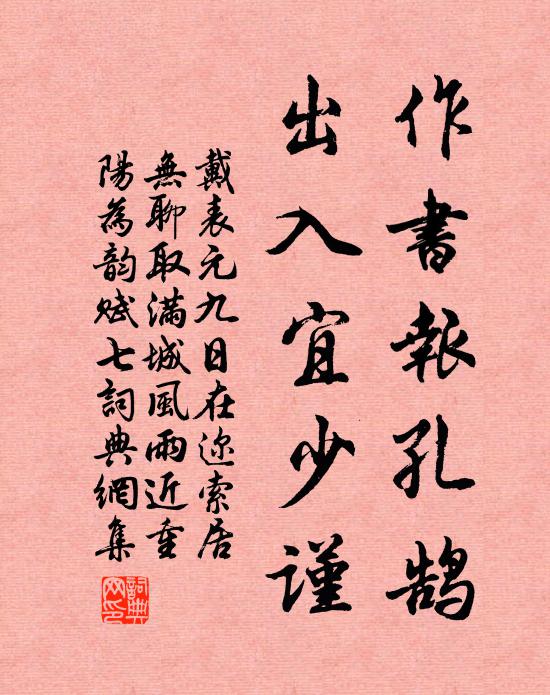 作書報孔鹄
出入宜少謹
戴表元九日在迩索居
無聊取滿城風雨近重
陽為韵赋七詞典網集
詞典网印